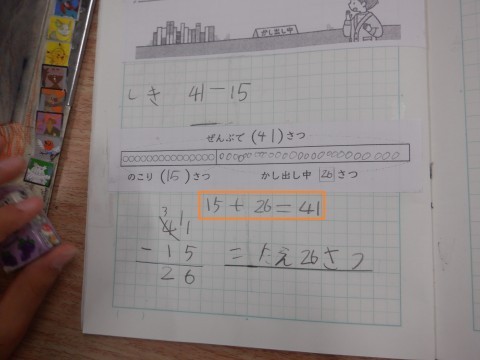 かし出し中
しき 41-15
ぜんぶで(41)さつ
のこり(15)さつ かし出し中 26 さつ
15+26=41
3 1
41
-15
26
こたえ26さつ